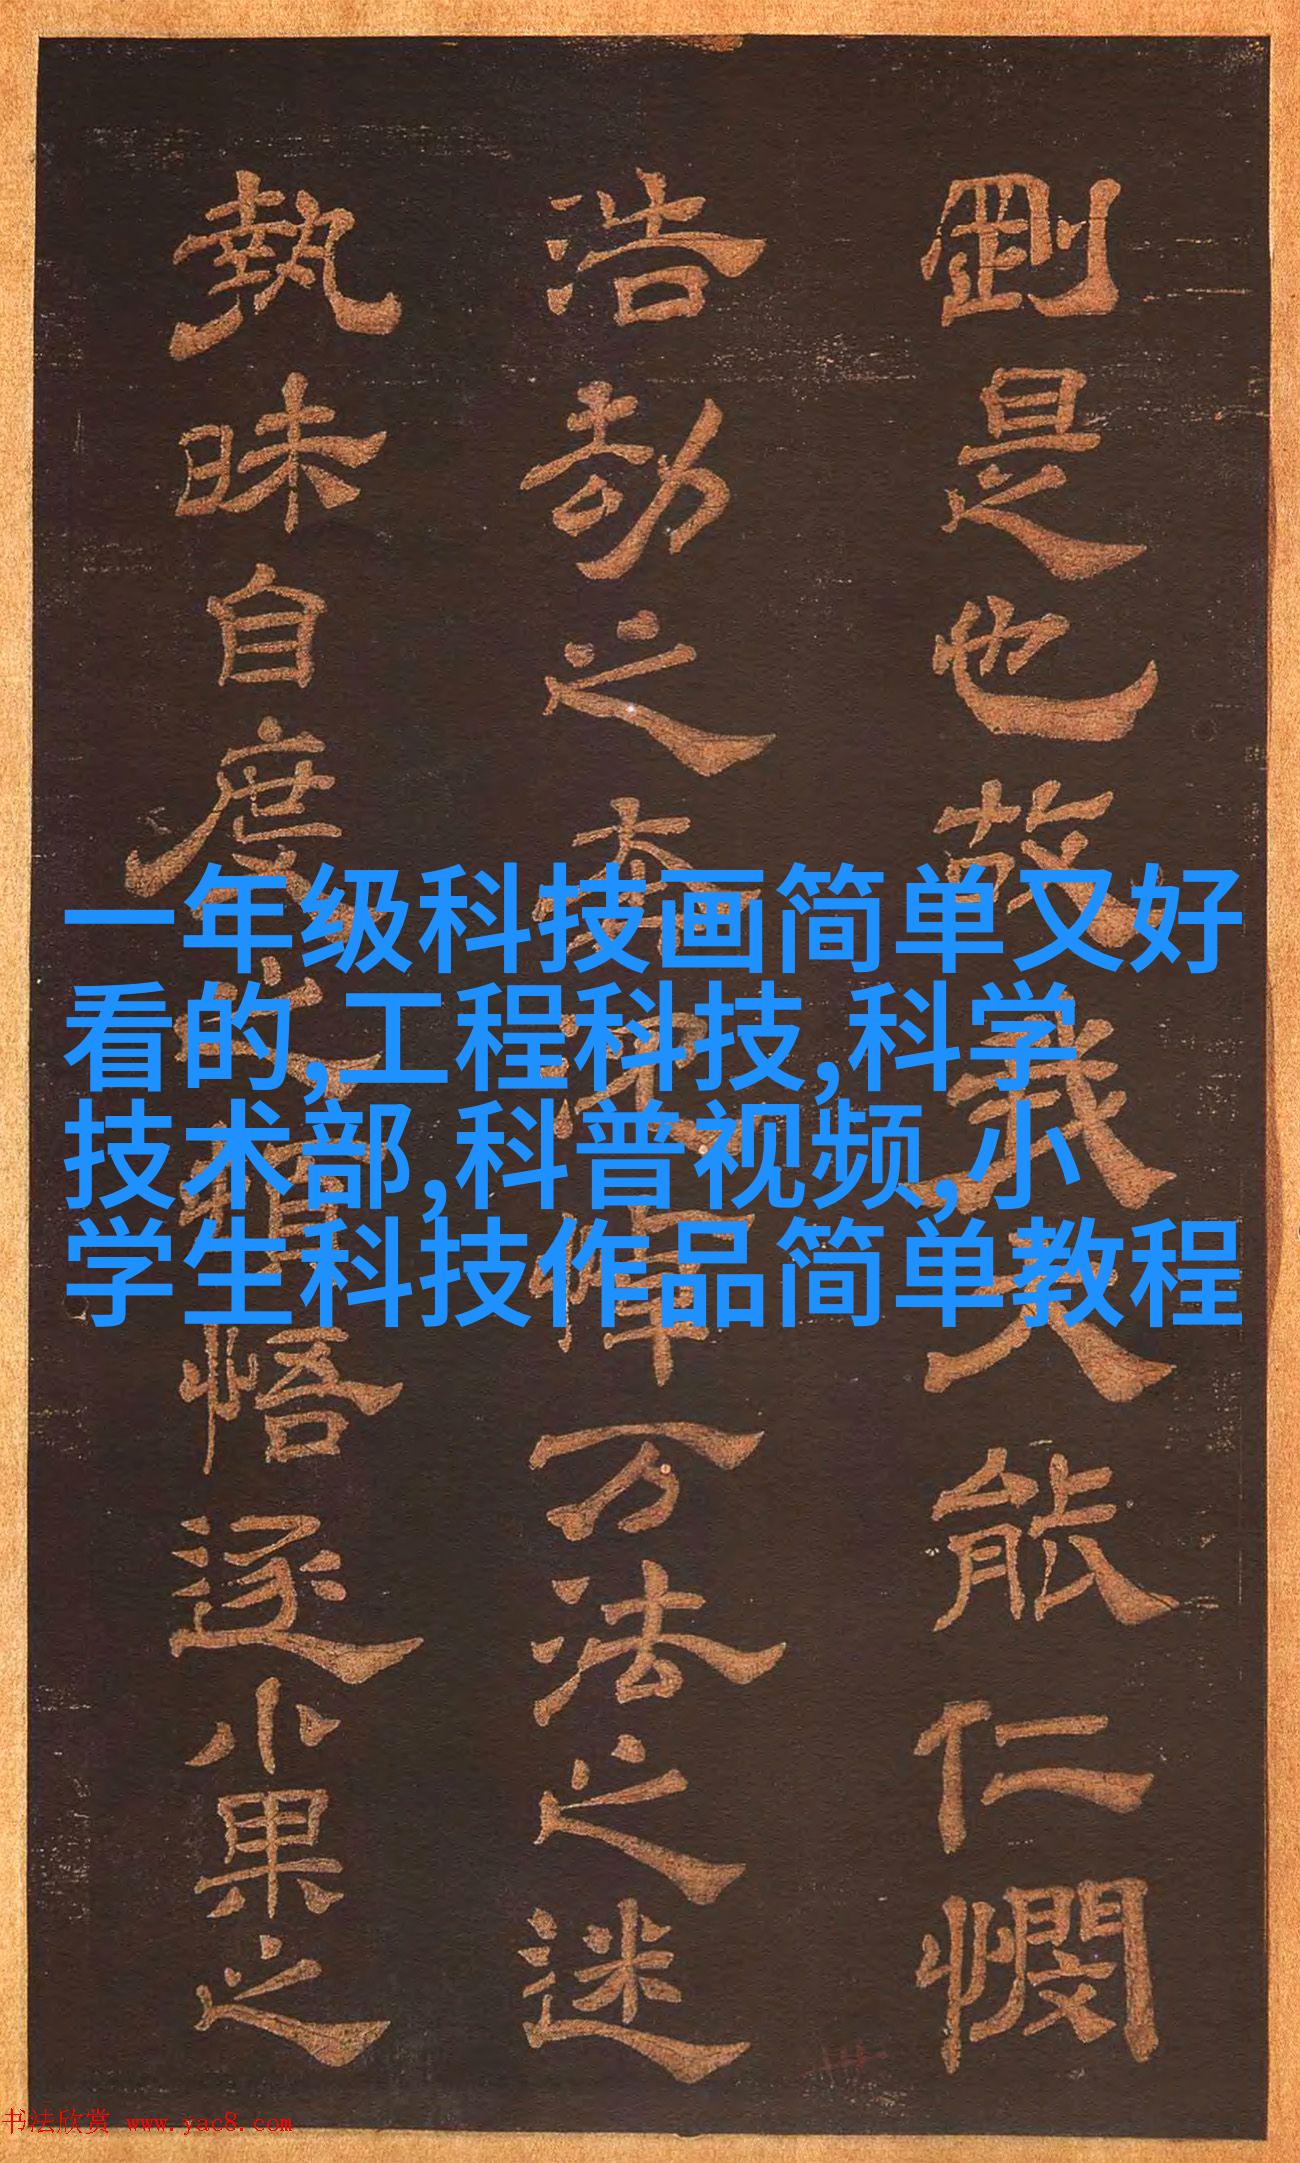 剛是也故義夫能仁憫
浩劫之
万法之迷
執昧自度之
悟逐小果之
一年级科技画简单又好
看的,工程科技,科学
技术部,科普视频,小
学生科技作品简单教程
书法欣赏 www.yac8.com